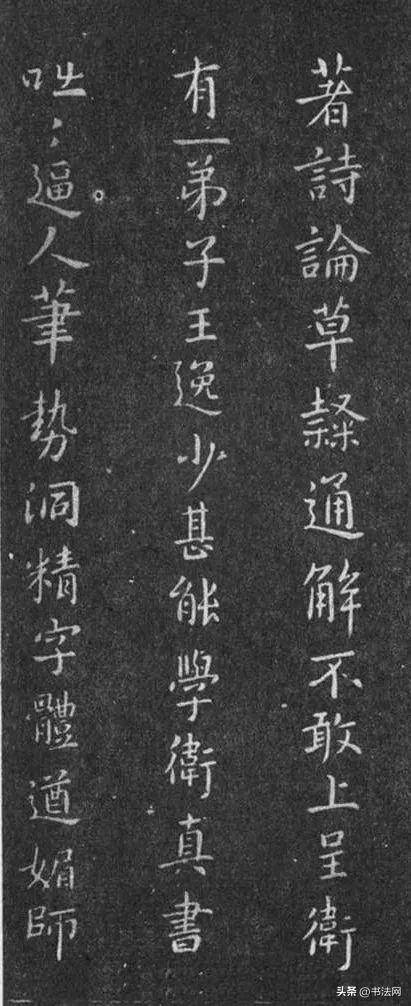 著詩論草隸通解不敢上呈衛
有一弟子王逸少甚能學衛真書
咄〻逼人筆勢洞精字體遒媚師
头条 @书法网